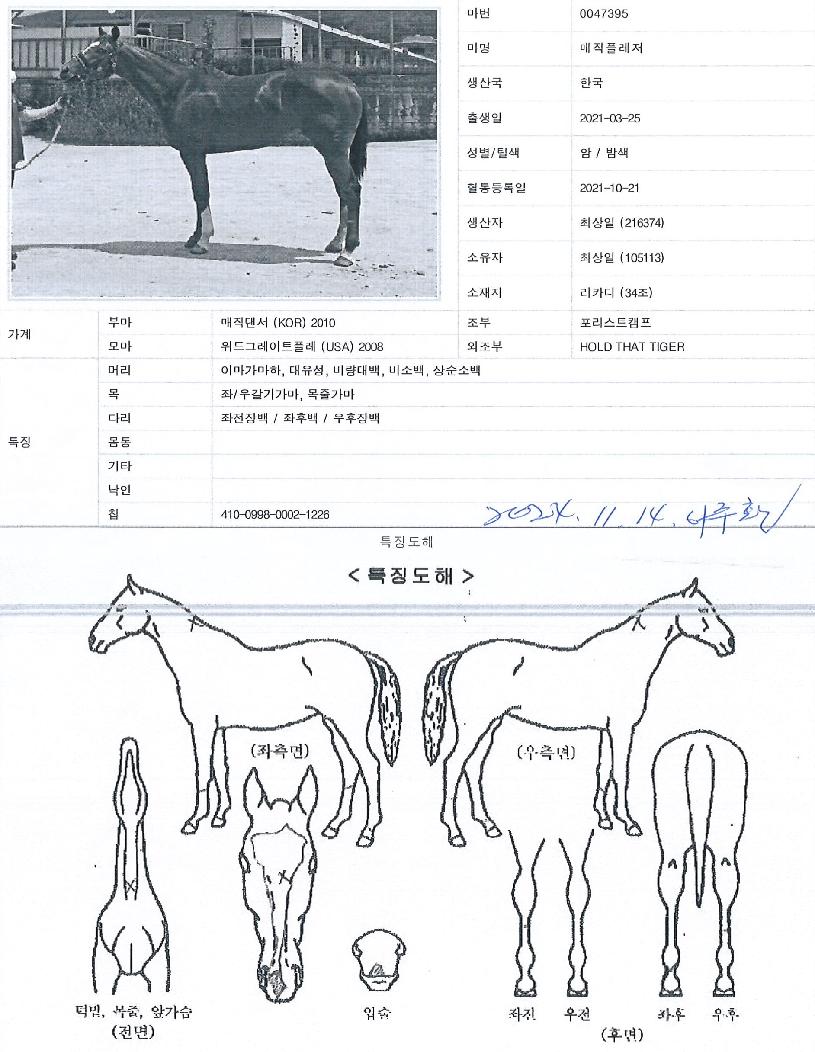 마번 0047395
마명 매직플레저
생산국 한국
출생일 2021-03-25
성별/털색 암 / 밤색
혈통등록일 2021-10-21
생산자 최상일 (216374)
소유자 최상일 (105113)
소재지 리카디 (34조)
가계
부마 매직댄서 (KOR) 2010 조부 포리스트캠프
모마 위드그레이트플레 (USA) 2008 외조부 HOLD THAT TIGER
특징
머리 이마가마하, 대유성, 비량대백, 비소백, 상순소백
목 좌/우갈기가마, 목줄가마
다리 좌전장백 / 좌후백 / 우후장백
몸통
기타
낙인
칩 410-0998-0002-1226
2024. 11. 14.
특징도해
< 특징도해 >
(좌측면) (우측면)
턱밑, 목줄, 앞가슴
(전면)
입술
좌전 우전 좌후 우후
(후면)